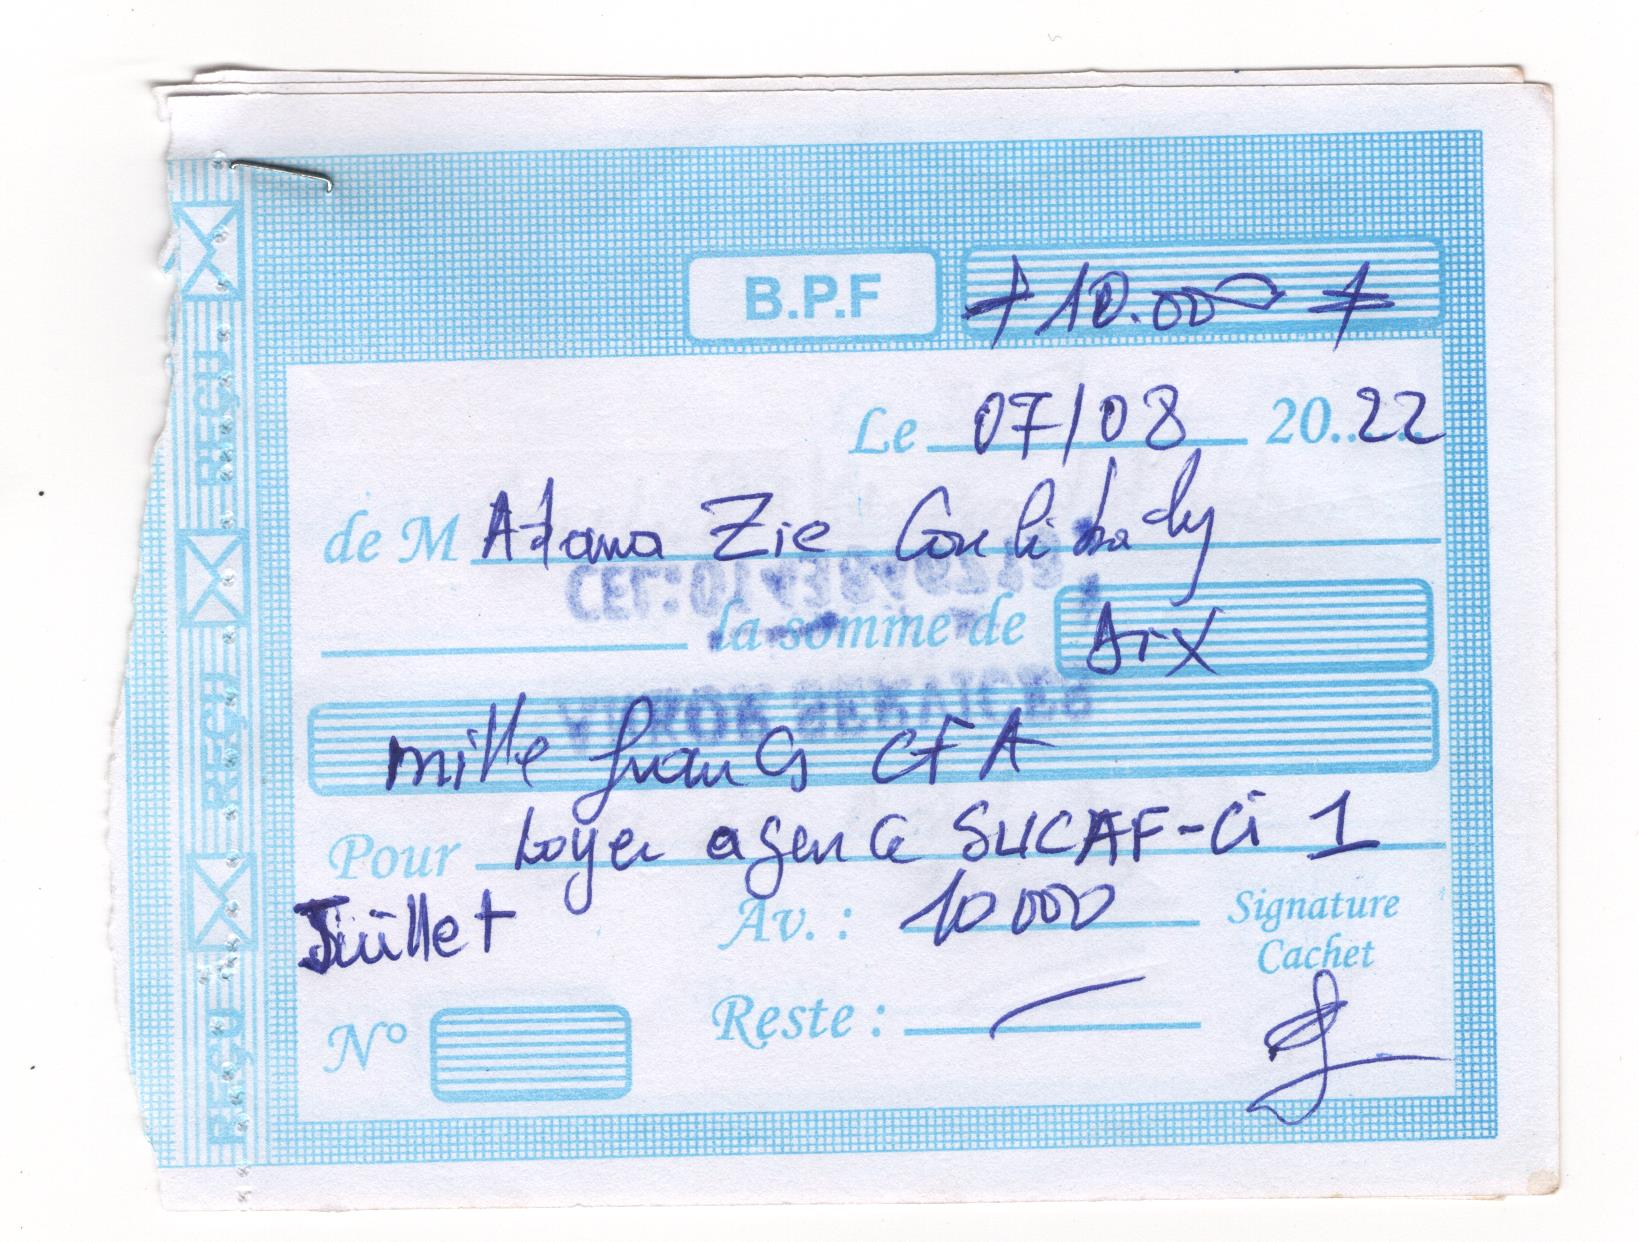 B.P.F ≠ 10.000 ≠
Le 07/08 2022
de M Adama Zie Coulibaly
la somme de dix
mille francs CFA
Pour Loyer agence SUCAF-Ci 1
Juillet Av. : 10 000 Signature
Cachet
N° Reste : —
REÇU
REÇU
REÇU
CEL: 01
SERVICES